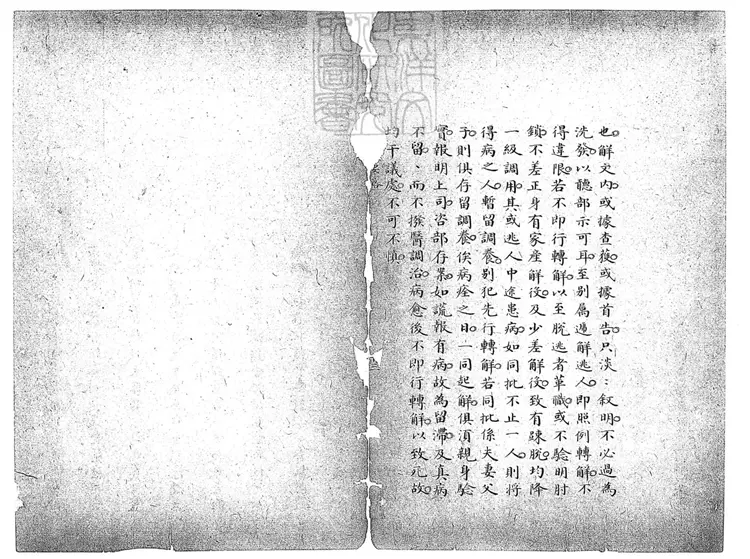 也解文内或據查獲或據首告只淡ミ叙明不必過為
洗發以聽部示可耳至别属逓解逃人即照例轉解不
得違限若不即行轉解以至脱逃者革職或不驗明肘
鎖不差正身有家産解役及少差解役致有踈脱均降
一級調用其或逃人中途患病如同批不止一人則将
得病之人暫留調養别犯先行轉解若同批係夫妻父
子則俱存留調養俟病痊之日一同起解俱湏親身驗
實報明上司咨部存案如謊報有病故為留滯及真病
不留ミ而不撥醫調治病愈後不即行轉解以致死故
均干議處不可不慎